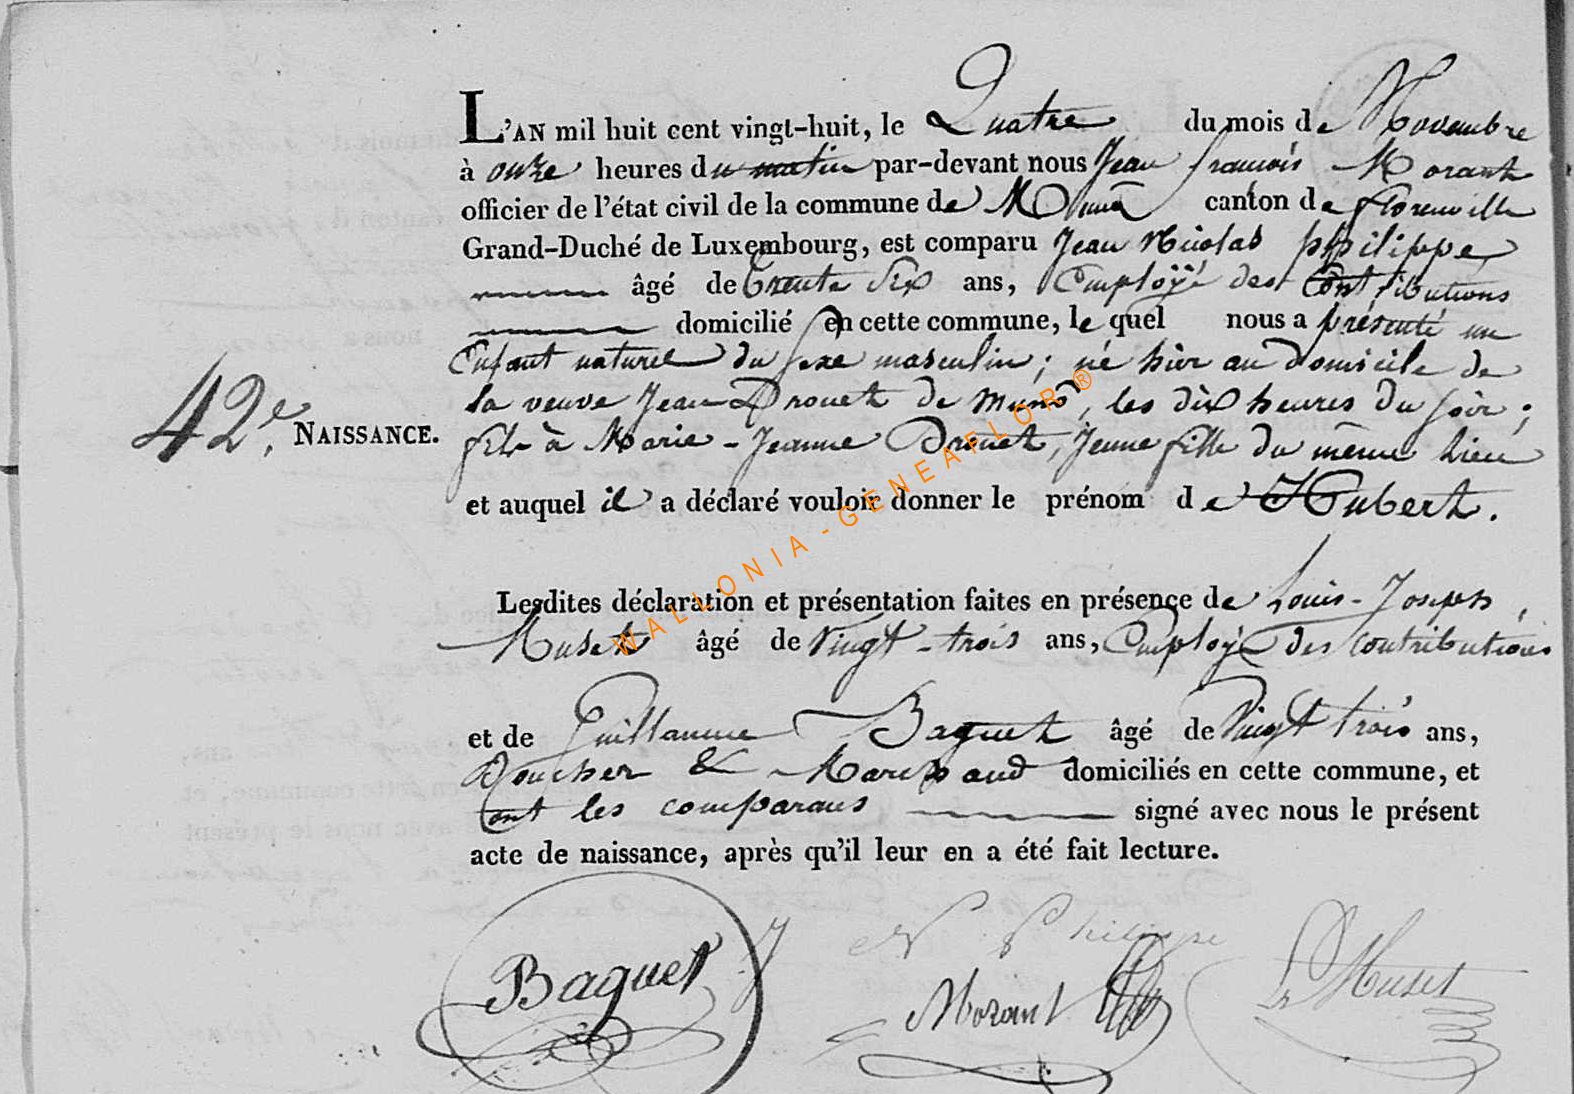 L'AN mil huit cent vingt-huit, le Quatre du mois de Novembre
à onze heures du matin par-devant nous Jean françois Morant
officier de l'état civil de la commune de Muno canton de florenville
Grand-Duché de Luxembourg, est comparu Jean Nicolas philippe
âgé de trente Six ans, Employé des Contributions
domicilié en cette commune, le quel nous a présenté un
Enfant naturel du sexe masculin; né hier au domicile de
la veuve Jean Drouet de muno, les dix heures du soir;
fils à Marie-Jeanne Drouet, Jeune fille du même lieu
42e. NAISSANCE.
et auquel il a déclaré vouloir donner le prénom de Hubert.
Lesdites déclaration et présentation faites en présence de Louis-Joseph
Muset âgé de Vingt-trois ans, Employé des contributions
et de Guillaume Baguet âgé de Vingt trois ans,
Boucher & Marchand domiciliés en cette commune, et
ont les comparans signé avec nous le présent
acte de naissance, après qu'il leur en a été fait lecture.
Baguet J N Philippe
Morant L J Muset
WALLONIA-GENEAFLOR®